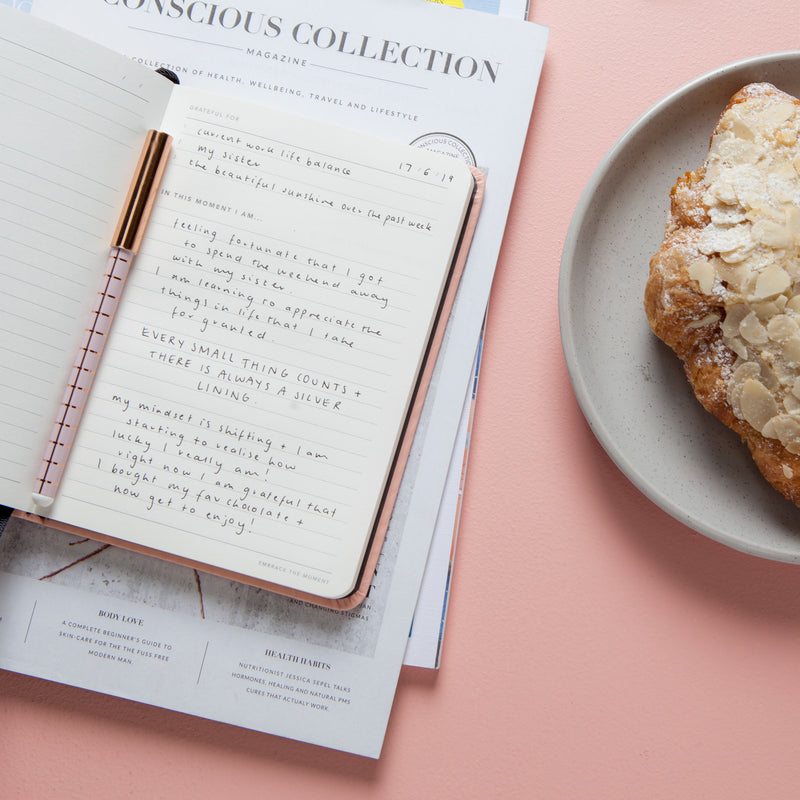 CONSCIOUS COLLECTION
MAGAZINE
COLLECTION OF HEALTH, WELLBEING, TRAVEL AND LIFESTYLE
GRATEFUL FOR
17/6/19
current work life balance
my sister
the beautiful sunshine over the past week
IN THIS MOMENT I AM...
feeling fortunate that I got
to spend the weekend away
with my sister.
I am learning to appreciate the
things in life that I take
for granted.
EVERY SMALL THING COUNTS +
THERE IS ALWAYS A SILVER
LINING.
my mindset is shifting + I am
starting to realise how
lucky I really am!
right now I am grateful that
I bought my fav chocolate +
now get to enjoy!
EMBRACE THE MOMENT
AND CHANGING STIGMAS
BODY LOVE
A COMPLETE BEGINNER'S GUIDE TO
SKIN-CARE FOR THE THE FUSS FREE
MODERN MAN.
HEALTH HABITS
NUTRITIONIST JESSICA SEPEL TALKS
HORMONES, HEALING AND NATURAL PMS
CURES THAT ACTUALY WORK.